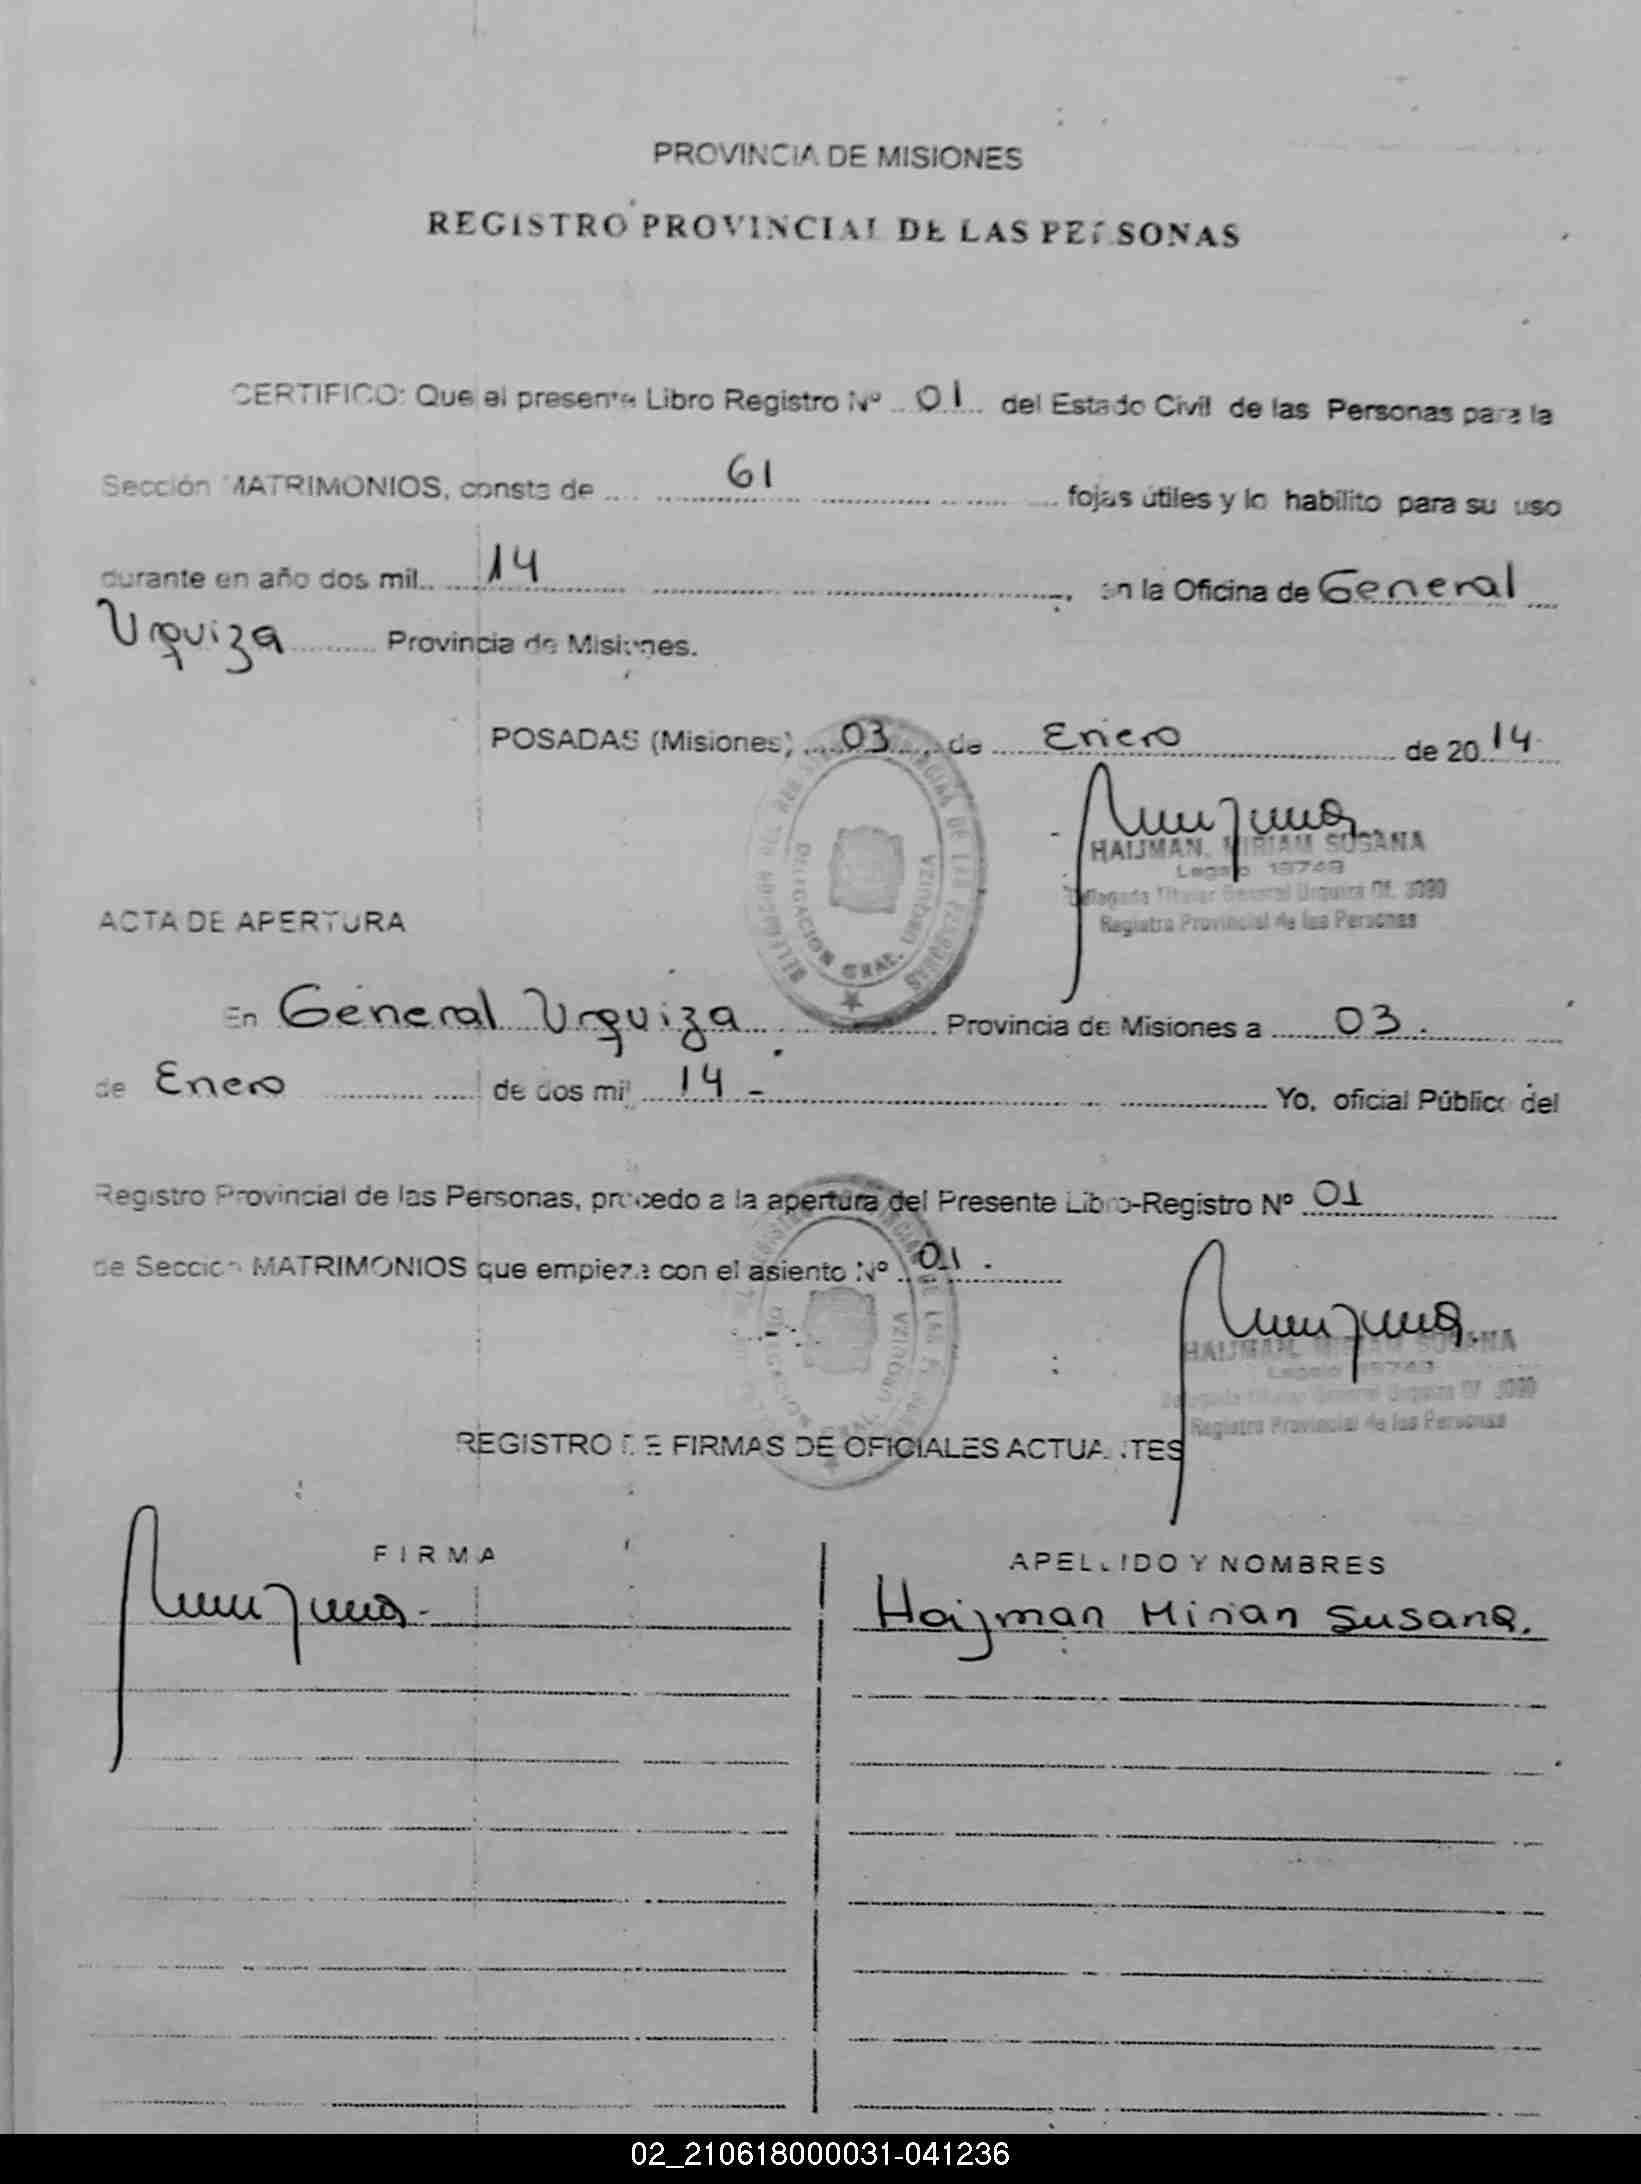 PROVINCIA DE MISIONES
REGISTRO PROVINCIAL DE LAS PERSONAS
CERTIFICO: Que el presente Libro Registro Nº 01 del Estado Civil de las Personas para la
Sección MATRIMONIOS, consta de 61 fojas útiles y lo habilito para su uso
durante en año dos mil 14 en la Oficina de General
Urquiza Provincia de Misiones.
POSADAS (Misiones) 03 de Enero de 2014
HAIJMAN, MIRIAM SUSANA
Legajo 19749
Delegada Titular General Urquiza Of. 3090
Registro Provincial de las Personas
DELEGACION GRAL. URQUIZA
ACTA DE APERTURA
En General Urquiza Provincia de Misiones a 03
de Enero de dos mil 14 - Yo, oficial Público del
Registro Provincial de las Personas, procedo a la apertura del Presente Libro-Registro Nº 01
de Sección MATRIMONIOS que empieza con el asiento Nº 01.
HAIJMAN, MIRIAM SUSANA
Legajo 19749
Delegada Titular General Urquiza Of. 3090
Registro Provincial de las Personas
REGISTRO DE FIRMAS DE OFICIALES ACTUANTES
FIRMA APELLIDO Y NOMBRES
Haijman Mirian Susana.
02_210618000031-041236